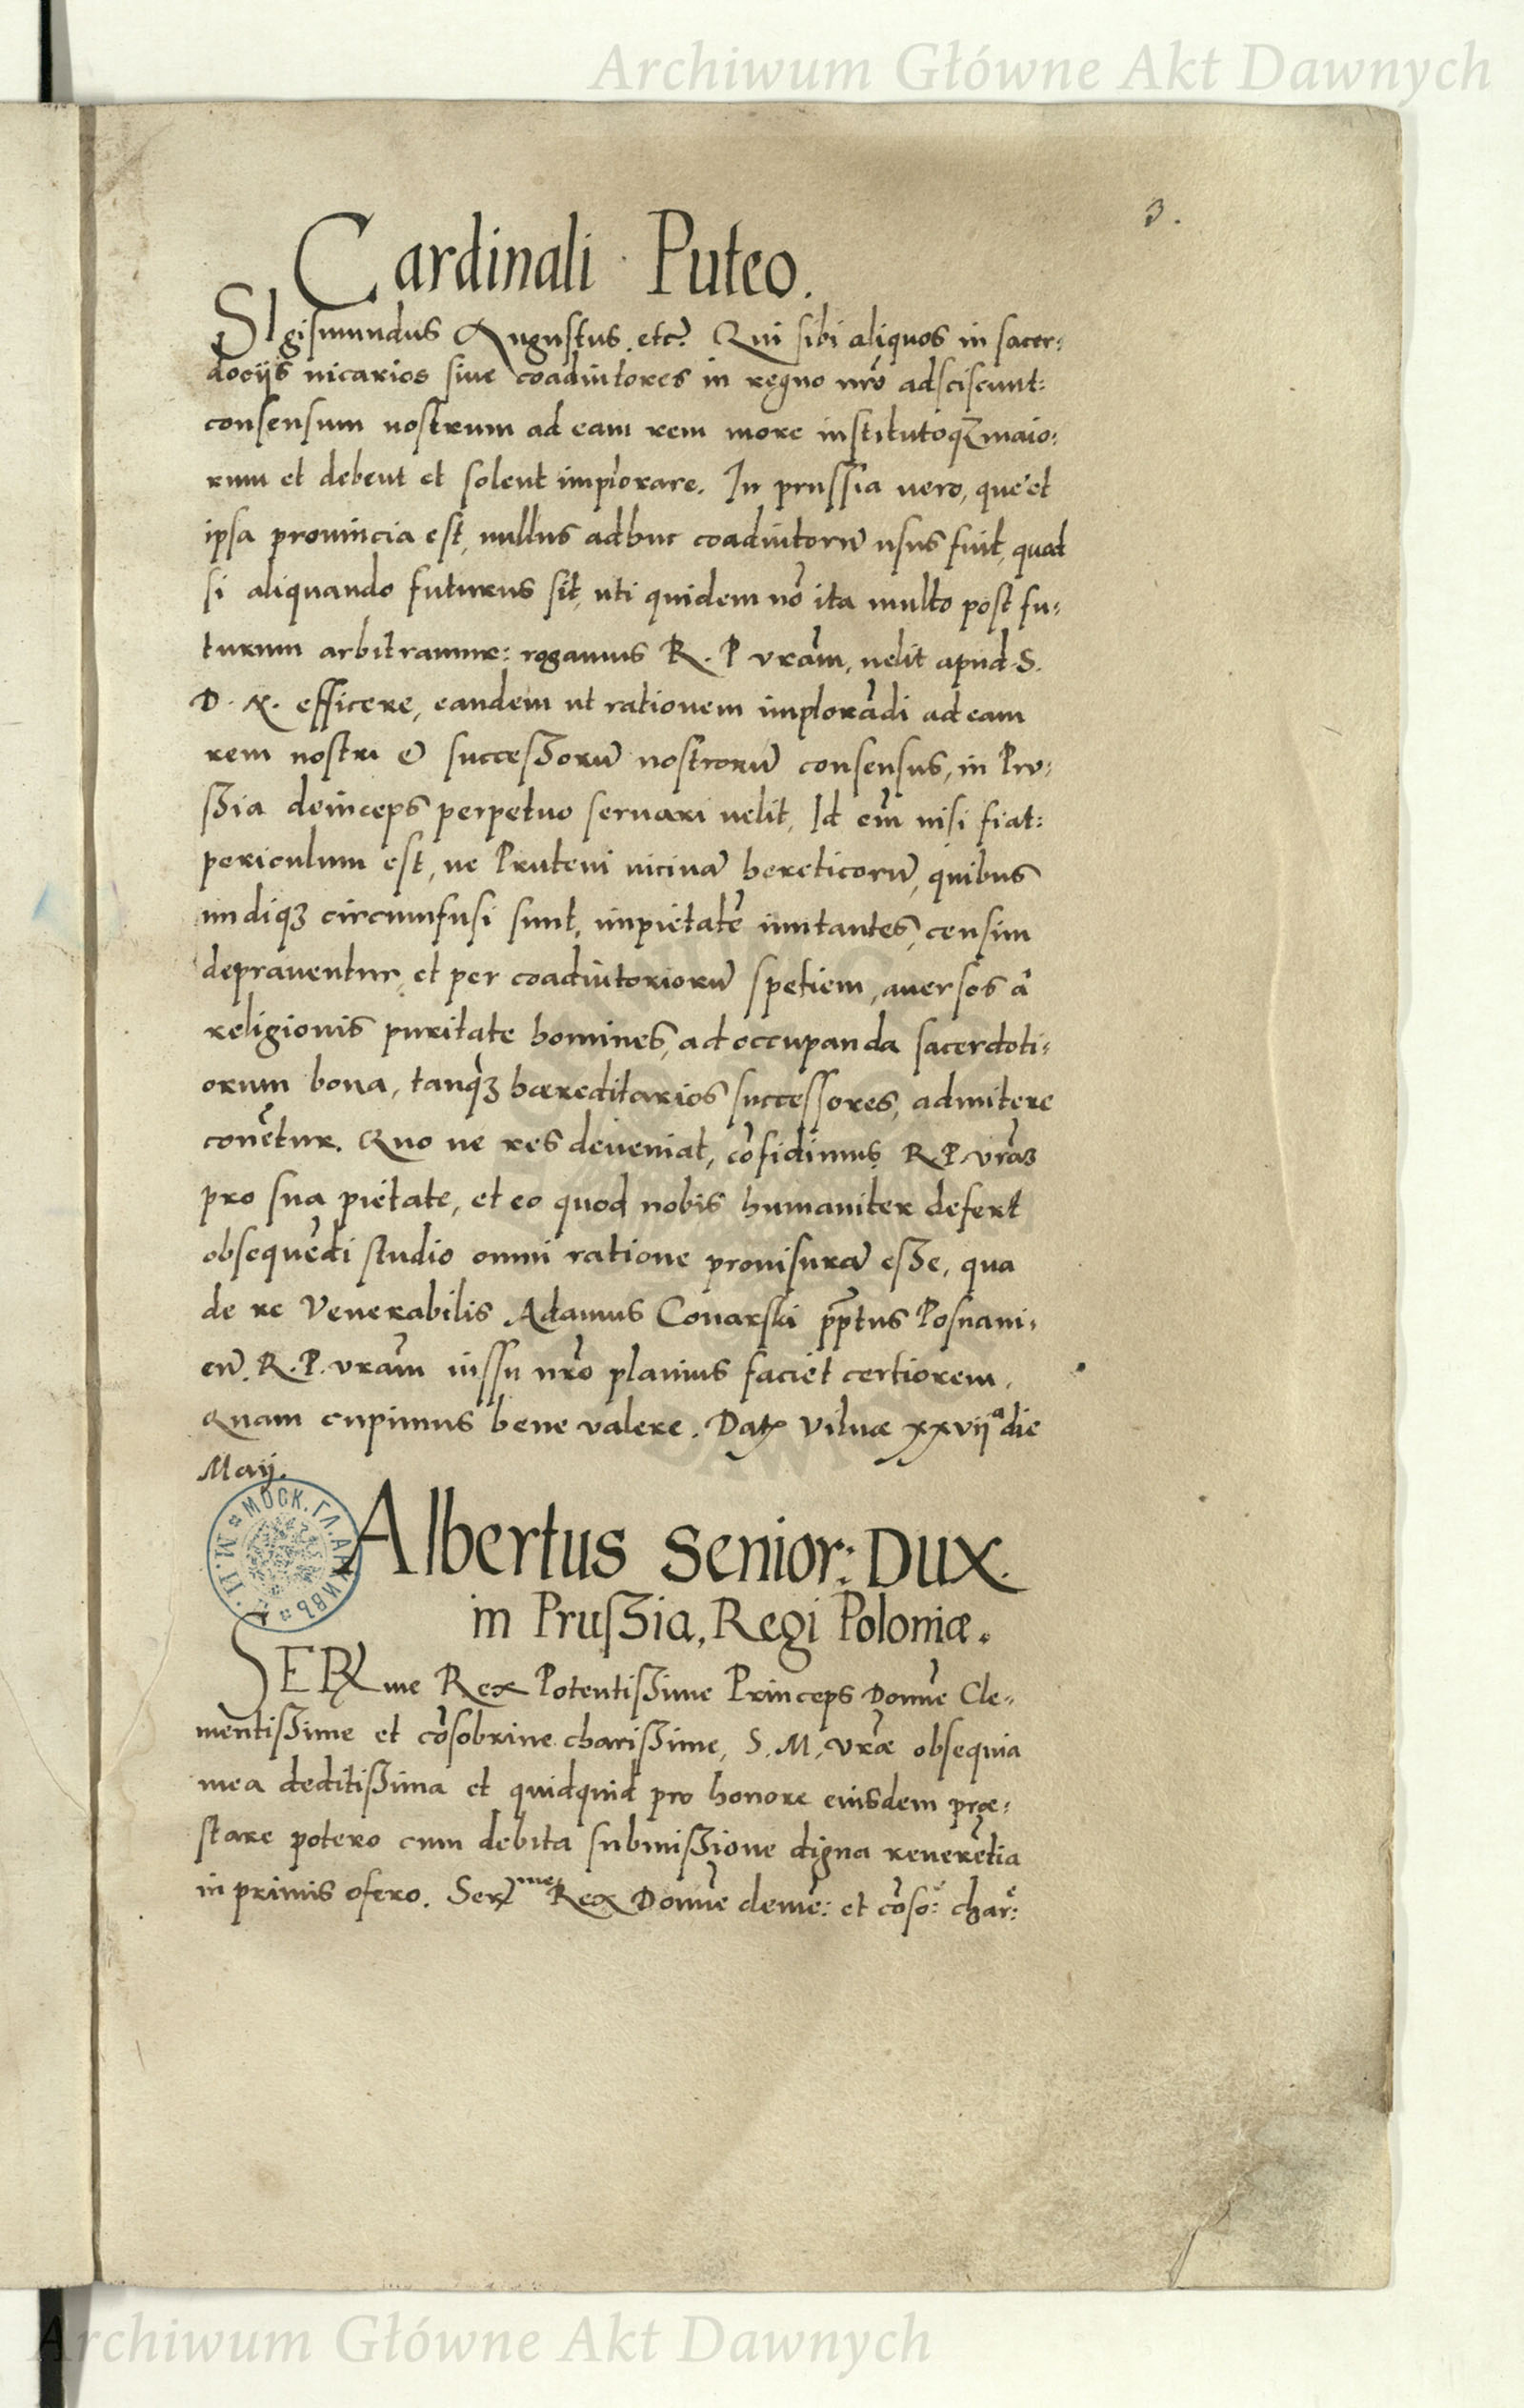 Archiwum Główne Akt Dawnych
3.
Cardinali Puteo.
SIgismundus Augustus. etc? Qui sibi aliquos in sacer:
docijs uicarios siue coadiutores in regno nrõ adsciscunt:
consensum nostrum ad eam rem more institutoqȝ maio:
rum et debent et solent implorare. In prussia uero, que et
ipsa prouincia est, nullus adhuc coadiutorũ usus fuit, quod
si aliquando futurus sit, uti quidem nõ ita multo post fu:
turum arbitramur: rogamus R. P vrãm, uelit apud S.
D. N. efficere, eandem ut rationem implorãdi ad eam
rem nostri & successorũ nostrorũ consensus, in Pru:
ssia deinceps perpetuo seruari uelit, Id em̃ nisi fiat:
periculum est, ne Pruteni uicinã hereticorũ, quibus
undiqȝ circumfusi sunt, impietatẽ imitantes, censim
deprauentur, et per coadiutoriorũ spetiem, auersos à
religionis puritate homines, ad occupanda sacerdoti:
orum bona, tanqȝ hæreditarios successores, admitere
conẽtur. Quo ne res deueniat, cõfidimus R. P. vrãȝ
pro sua pietate, et eo quod nobis humaniter defert
obsequẽdi studio omni ratione prouisurã esse, qua
de re Venerabilis Adamus Conarski pp̃tus Posnani:
eñ. R. P. vrãm iussu nrõ planius faciet certiorem,
Quam cupimus bene valere. Dat Vilnæ xxvijª die
Maij.
МОСК. ГЛ. АРХИВЪ М. И. Д.
Albertus Senior: Dux
in Prussia, Regi Poloniæ.
SERme Rex Potentissime Princeps Domñe Cle:
mentissime et cõsobrine charissime, S. M. vræ̃ obsequia
mea deditissima et quidquid pro honore eiusdem præ:
stare potero cum debita submissione digna reuerẽtia
in primis ofero. Serme Rex Domñe clemẽ: et cõso: char:
Archiwum Główne Akt Dawnych